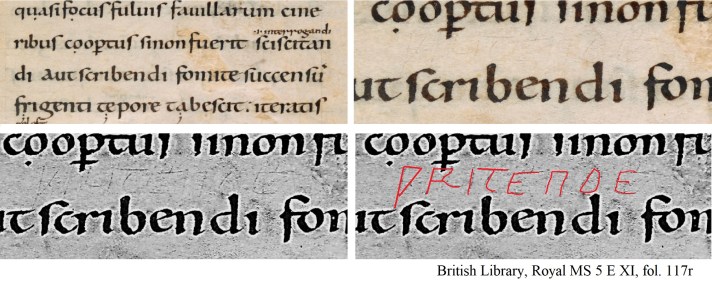 quasi focus fuluis fauillarum cine
.i. interrogandi
ribus cooꝑtus sinon fuerit sciscitan
di aut scribendi fomite succensū
frigenti tepore tabescit. iteratis
cooꝑtus sinon fu
ut scribendi fom
cooꝑtus sinon fu
ut scribendi fom
cooꝑtus sinon fu
PRITENOE
ut scribendi fom
British Library, Royal MS 5 E XI, fol. 117r